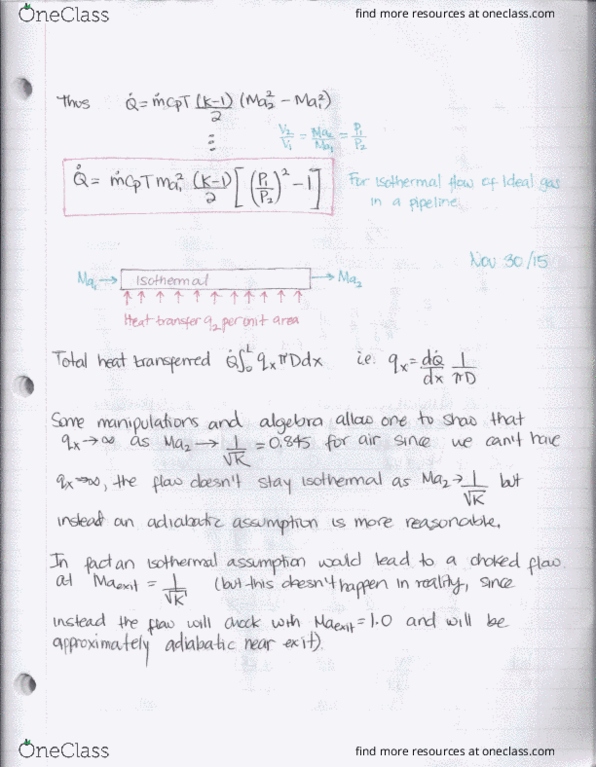 OneClass find more resources at oneclass.com
Thus Q̇ = ṁCpT (K-1)/2 (Ma₂² - Ma₁²)
⋮ V₂/V₁ = Ma₂/Ma₁ = P₁/P₂
Q̇ = ṁCpT Ma₁² (K-1)/2 [(P₁/P₂)² - 1] For isothermal flow of ideal gas
in a pipeline
Nov 30/15
Ma₁ → Isothermal → Ma₂
↑ ↑ ↑ ↑ ↑ ↑ ↑ ↑ ↑ ↑ ↑
Heat transfer q₂ per unit area
Total heat transferred Q̇ ∫₀ᴸ qₓπDdx i.e. qₓ = dQ̇/dx 1/πD
Some manipulations and algebra allow one to show that
qₓ → ∞ as Ma₂ → 1/√K = 0.845 for air since we can't have
qₓ → ∞, the flow doesn't stay isothermal as Ma₂ → 1/√K but
instead an adiabatic assumption is more reasonable.
In fact an isothermal assumption would lead to a choked flow
at Maexit = 1/√K (but this doesn't happen in reality, since
instead the flow will chock with Maexit = 1.0 and will be
approximately adiabatic near exit).
OneClass find more resources at oneclass.com